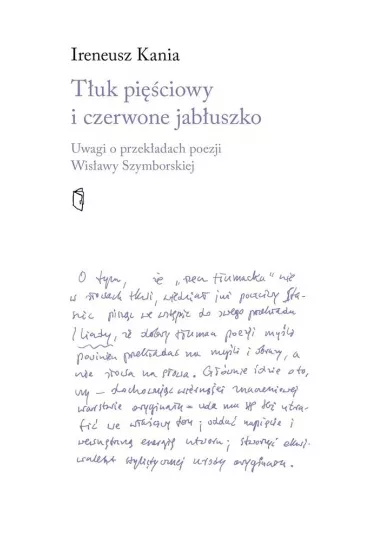 Ireneusz Kania
Tłuk pięściowy
i czerwone jabłuszko
Uwagi o przekładach poezji
Wisławy Szymborskiej
O tym, że „rzecz tłumacka” nie
w słowach tkwi, wiedział już poczciwy Sta-
szic pisząc we wstępie do swego przekładu
Iliady, iż dobry tłuman poezji myśli
powinien przekładać na myśli i obrazy, a
nie słowa na słowa. Głównie idzie o to,
czy – dochowując wierności znaczeniowej
warstwie oryginału – uda mu się też utra-
fić we właściwy ton; oddać napięcie i
wewnętrzną energię utworu; stworzyć ekwi-
walent stylistycznej urody oryginału.